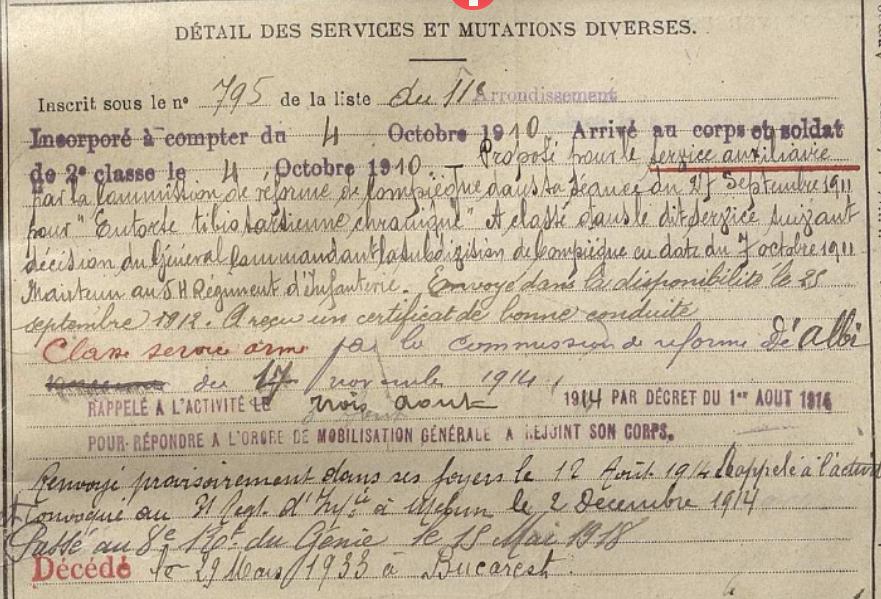 DÉTAIL DES SERVICES ET MUTATIONS DIVERSES.
Inscrit sous le nº 795 de la liste du 11e Arrondissement
Incorporé à compter du 4 Octobre 1910 Arrivé au corps et soldat
de 2e classe le 4 Octobre 1910 – Proposé pour le service auxiliaire
par la Commission de réforme de Compiègne dans sa séance du 27 Septembre 1911
pour "Entorse tibio tarsienne chronique" A classé dans le dit service suivant
décision du Général Commandant la subdivision de Compiègne en date du 7 octobre 1911
Maintenu au 54 Régiment d'Infanterie. Envoyé dans la disponibilité le 25
septembre 1912. A reçu un certificat de bonne conduite
Classé service armé par la commission de réforme d'Albi
du 17 novembre 1914
RAPPELÉ A L'ACTIVITÉ LE trois août 1914 PAR DÉCRET DU 1er AOUT 1914
POUR RÉPONDRE A L'ORDRE DE MOBILISATION GÉNÉRALE A REJOINT SON CORPS.
Renvoyé provisoirement dans ses foyers le 12 Août 1914 Rappelé à l'activité
et convoqué au 31 Regt d'Infie à Melun le 2 Decembre 1914
Passé au 8e Rt du Génie le 15 Mai 1918
Décédé le 29 Mars 1933 à Bucarest.